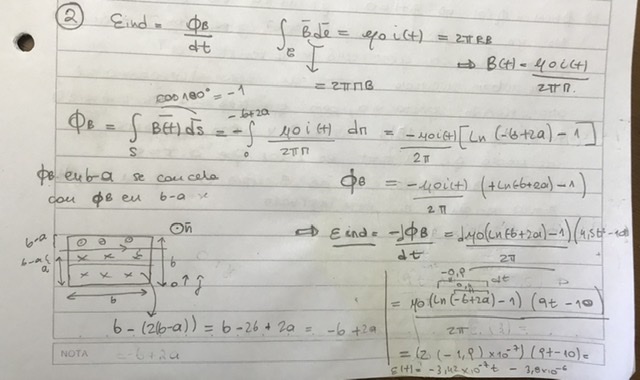 ② Eind = ΦB / dt    ∫E B̄ dē = μ0 i(t) = 2πRB
= 2πΠB    ⇒ B(t) = μ0 i(t) / 2πΠ
cos 180° = -1
ΦB = ∫S B̄(t) ds̄ = -∫0^-b+2a μ0 i(t) / 2πΠ dΠ = -μ0 i(t) / 2π [Ln(-b+2a) - 1]
ΦB en b-a se cancela
con ΦB en b-a    ΦB = -μ0 i(t) / 2π (+Ln(-b+2a) - 1)
⊙n̄    ⇒ Eind = -dΦB / dt = dμ0(Ln(-b+2a) - 1)(4,5t² - 10t) / 2π dt
b-a
b-a    b
a
b
= μ0(Ln(-b+2a) - 1)(9t - 10) / 2π
b - (2(b-a)) = b - 2b + 2a = -b + 2a
NOTA    -b + 2a
= (2(-1,9) × 10⁻⁷)(9t - 10) =
E(t) = -3,42 × 10⁻⁶ t - 3,8 × 10⁻⁶